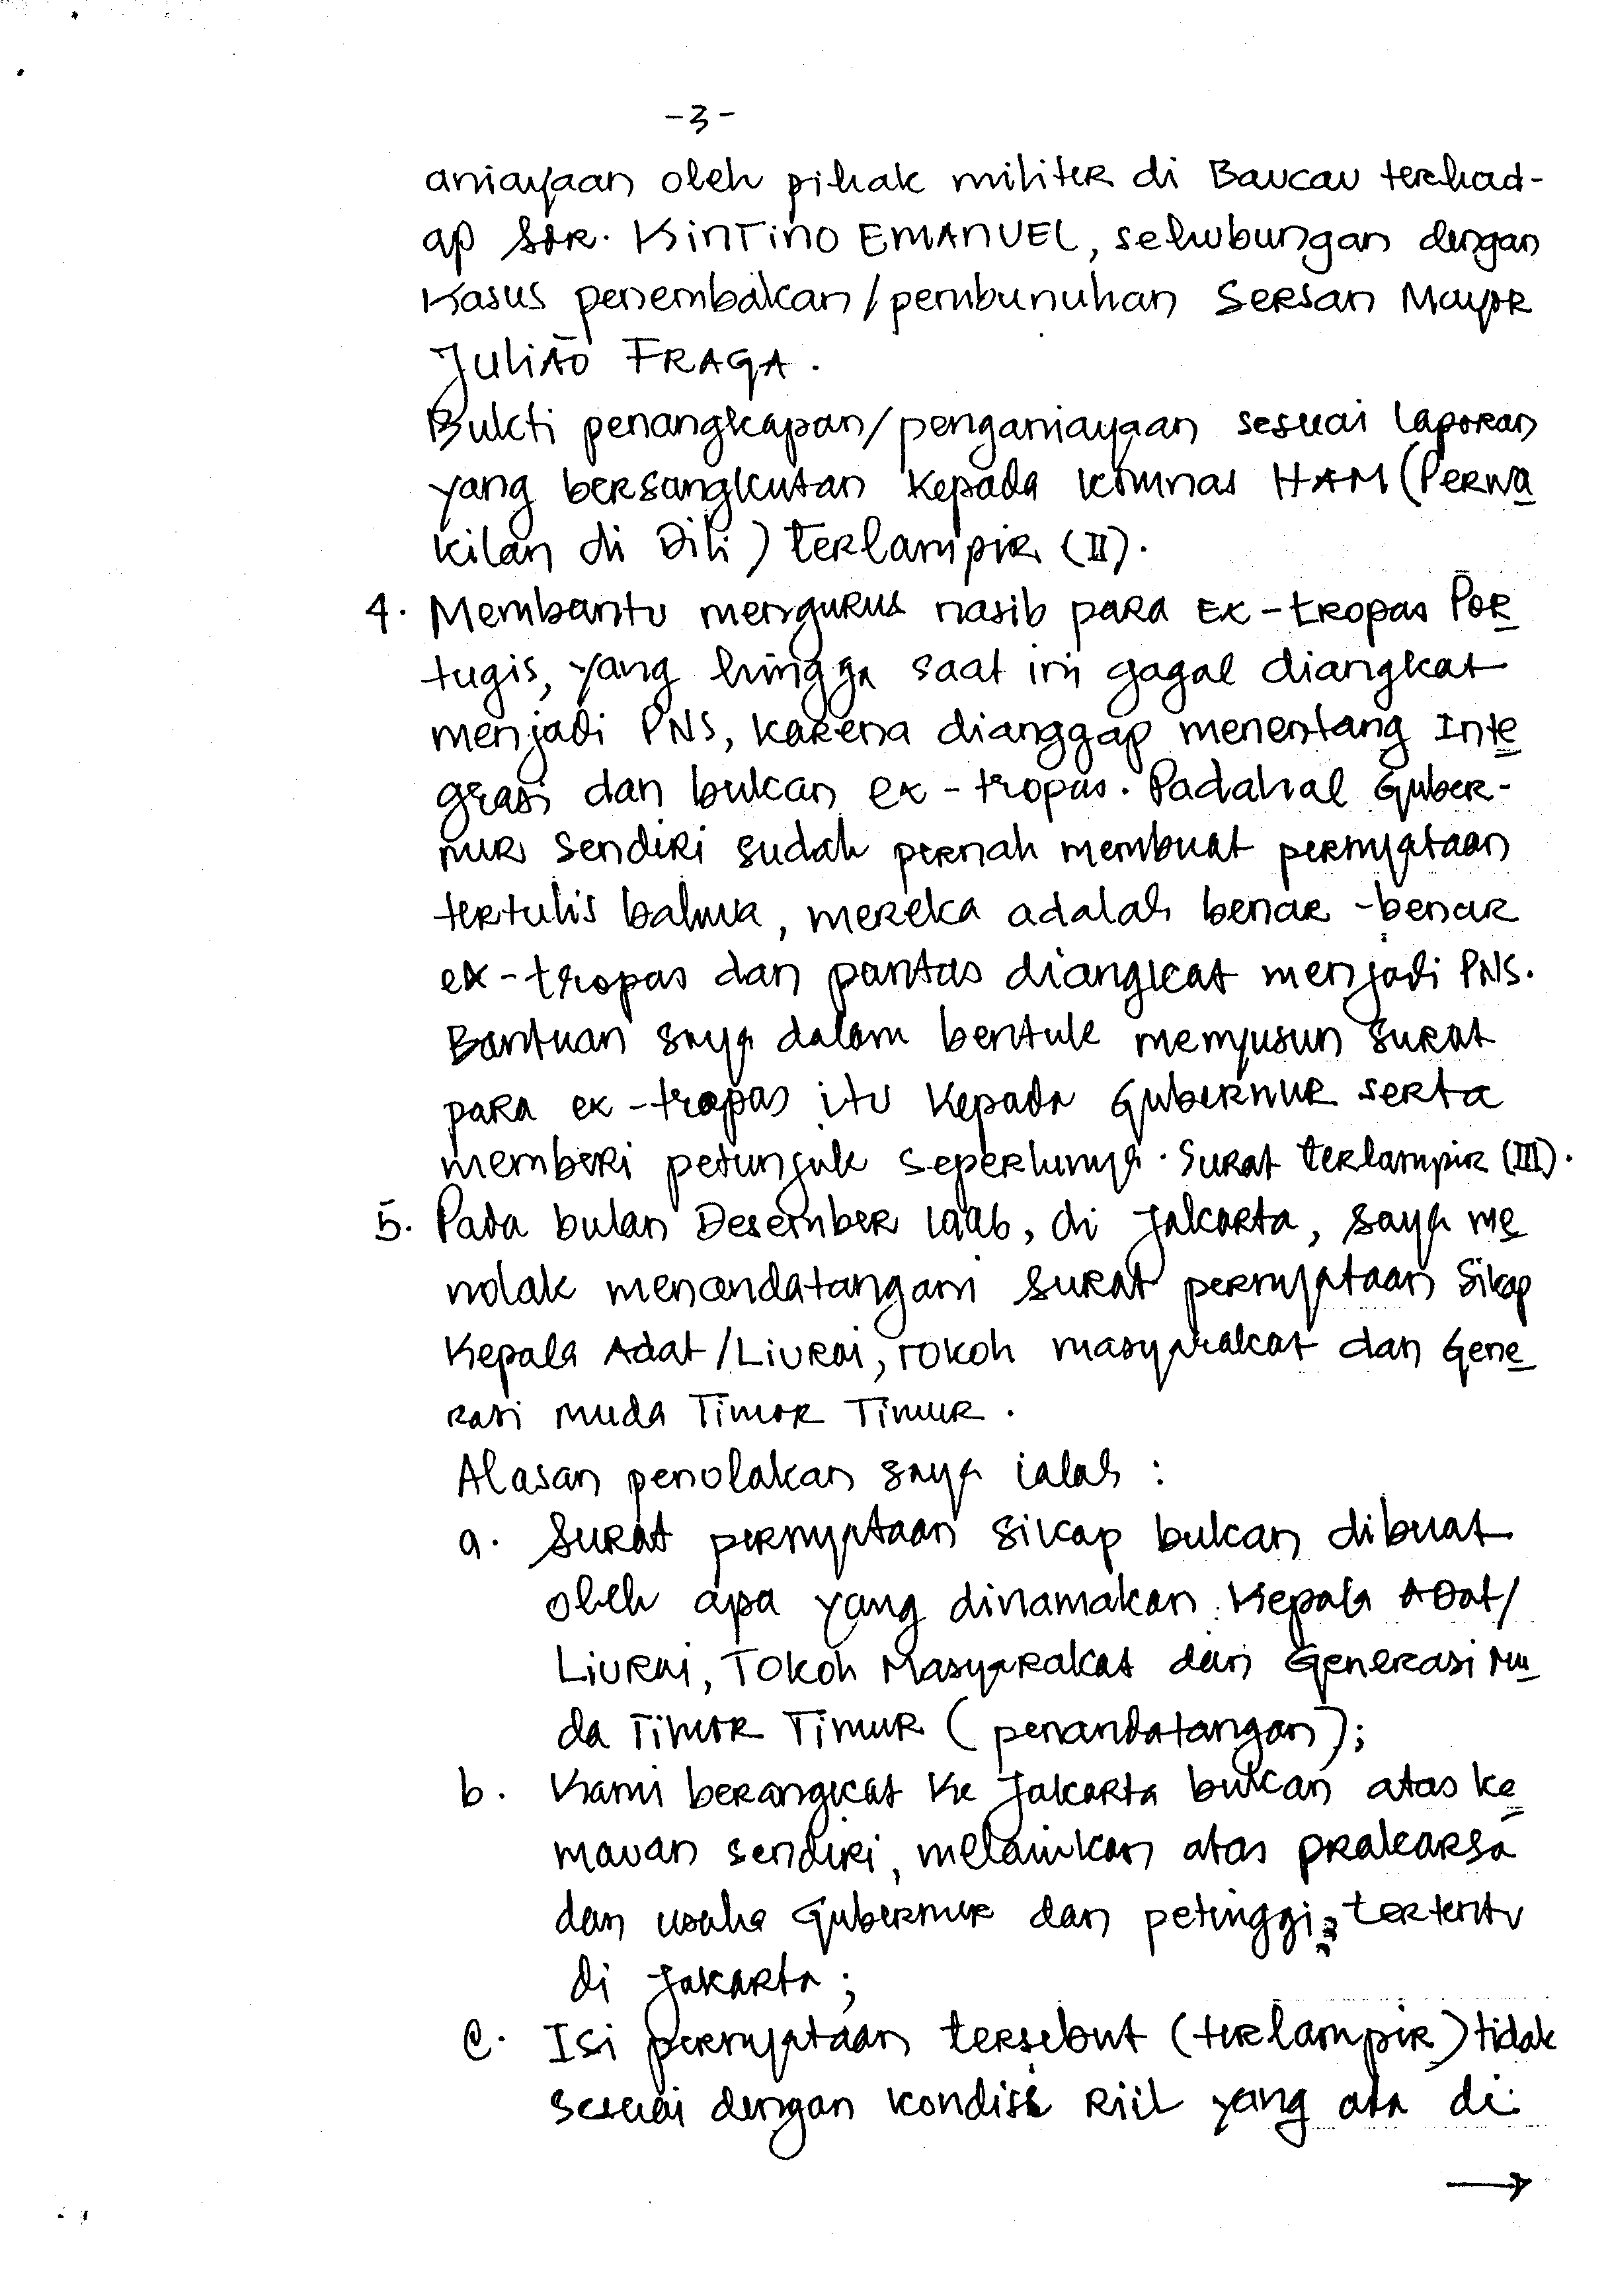 -3-
aniayaan oleh pihak militer di Baucau terhad-
ap Sdr. KINTINO EMANUEL, sehubungan dengan
Kasus penembakan/pembunuhan Sersan Mayor
JULIÃO FRAGA.
Bukti penangkapan/penganiayaan sesuai laporan
yang bersangkutan kepada Komnas HAM (Perwa
kilan di Dili) terlampir (II).
4. Membantu mengurus nasib para Ex-tropas Por
tugis, yang hingga saat ini gagal diangkat
menjadi PNS, karena dianggap menentang Inte
grasi dan bukan ex-tropas. Padahal Guber-
nur sendiri sudah pernah membuat pernyataan
tertulis bahwa, mereka adalah benar-benar
ex-tropas dan pantas diangkat menjadi PNS.
Bantuan saya dalam bentuk menyusun surat
para ex-tropas itu kepada Gubernur serta
memberi petunjuk seperlunya. Surat terlampir (III).
5. Pada bulan Desember 1996, di Jakarta, saya me
nolak menandatangani surat pernyataan Sikap
Kepala Adat/Liurai, Tokoh masyarakat dan Gene
rasi muda Timor Timur.
Alasan penolakan saya ialah :
a. Surat pernyataan sikap bukan dibuat
oleh apa yang dinamakan Kepala Adat/
Liurai, Tokoh Masyarakat dan Generasi Mu
da Timor Timur (penandatangan);
b. Kami berangkat ke Jakarta bukan atas ke
mauan sendiri, melainkan atas prakarsa
dan usaha Gubernur dan petinggi2 tertentu
di Jakarta;
c. Isi pernyataan tersebut (terlampir) tidak
sesuai dengan kondisi Riil yang ada di
→